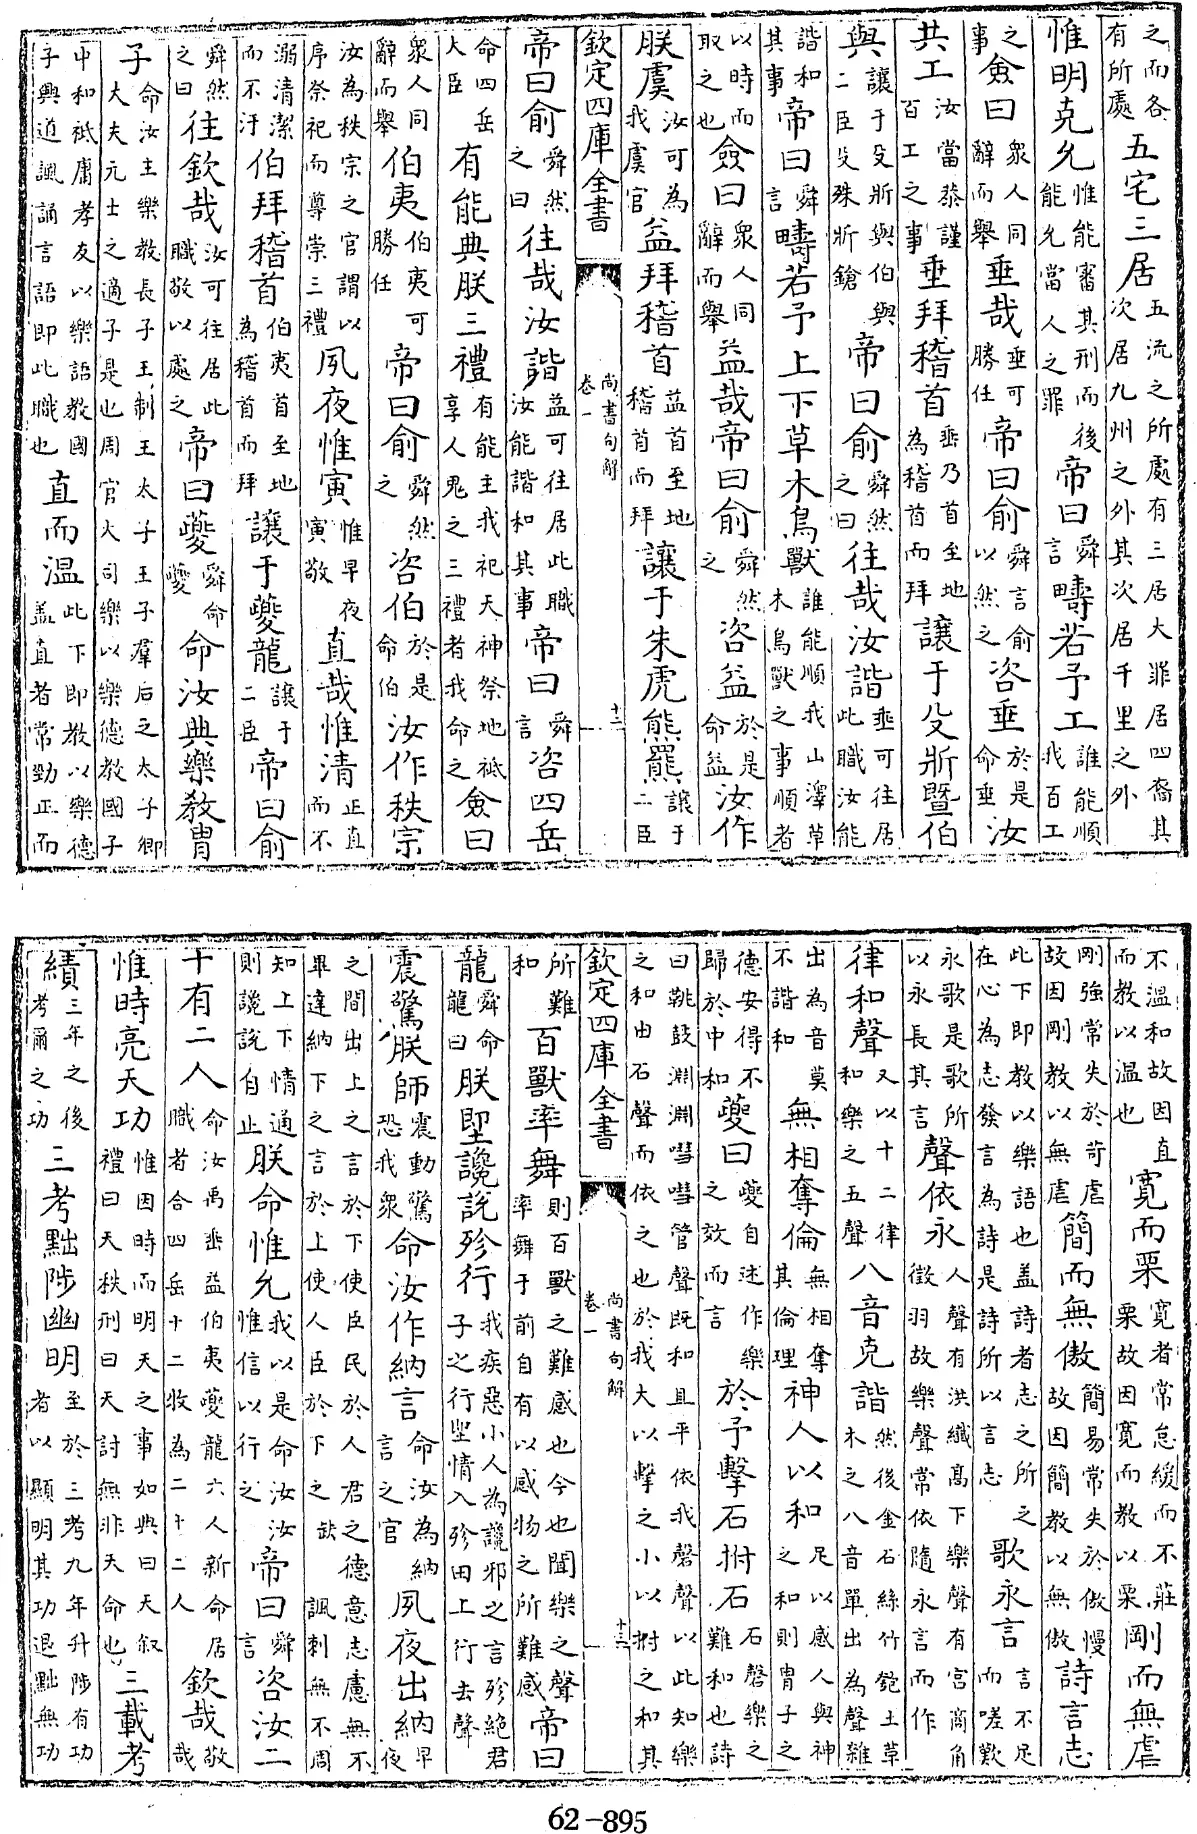 之而各有所處五宅三居五流之所處有三居大罪居四裔其次居九州之外其次居千里之外
惟明克允惟能審其刑而後能允當人之罪帝曰舜言疇若予工誰能順我百工
之事僉曰眾人同辭而舉垂哉垂可勝任帝曰俞舜言俞以然之咨垂於是命垂汝
共工汝當恭謹百工之事垂拜稽首垂乃首至地為稽首而拜讓于殳斨暨伯
與讓于殳斨與伯與二臣殳殊斨鎗帝曰俞舜然之曰往哉汝諧垂可往居此職汝能
諧和其事帝曰舜言疇若予上下草木鳥獸誰能順我山澤草木鳥獸之事順者
以時而取之也僉曰眾人同辭而舉益哉帝曰俞舜然之咨益於是命益汝作
朕虞汝可為我虞官益拜稽首益首至地稽首而拜讓于朱虎熊羆讓于二臣
欽定四庫全書 尚書句解 卷一 十二
帝曰俞舜然之曰往哉汝諧益可往居此職汝能諧和其事帝曰舜言咨四岳
命四岳大臣有能典朕三禮有能主我祀天神祭地祇享人鬼之三禮者我命之僉曰
眾人同辭而舉伯夷伯夷可勝任帝曰俞舜然之咨伯於是命伯汝作秩宗
汝為秩宗之官謂以序祭祀而尊崇三禮夙夜惟寅惟早夜寅敬直哉惟清正直而不
溺清潔而不汙伯拜稽首伯夷首至地為稽首而拜讓于夔龍讓于二臣帝曰俞
舜然之曰往欽哉汝可往居此職敬以處之帝曰夔舜命夔命汝典樂教胄
子命汝主樂教長子王制王太子王子羣后之太子卿大夫元士之適子是也周官大司樂以樂德教國子
中和祗庸孝友以樂語教國子興道諷誦言語即此職也直而溫此下即教以樂德蓋直者常勁正而
不溫和故因直而教以溫也寬而栗寬者常怠緩而不莊栗故因寬而教以栗剛而無虐
剛強常失於苛虐故因剛教以無虐簡而無傲簡易常失於傲慢故因簡教以無傲詩言志
此下即教以樂語也蓋詩者志之所之在心為志發言為詩是詩所以言志歌永言言不足而嗟歎
永歌是歌所以永長其言聲依永人聲有洪纖高下樂聲有宮商角徵羽故樂聲常依隨永言而作
律和聲又以十二律和樂之五聲八音克諧然後金石絲竹匏土草木之八音單出為聲雜
出為音莫不諧和無相奪倫無相奪其倫理神人以和足以感人與神之和則胄子之
德安得不歸於中和夔曰夔自述作樂之效而言於予擊石拊石石磬樂之難和也詩
曰鞉鼓淵淵嘒嘒管聲既和且平依我磬聲以此知樂之和由石聲而依之也於我大以擊之小以拊之和其
欽定四庫全書 尚書句解 卷一 十三
所難和百獸率舞則百獸之難感也今也聞樂之聲率舞于前自有以感物之所難感帝曰
龍舜命龍曰朕堲讒說殄行我疾惡小人為讒邪之言殄絕君子之行堲情入殄田上行去聲
震驚朕師震動驚恐我眾命汝作納言命汝為納言之官夙夜出納早夜
之間出上之言於下使臣民於人君之德意志慮無不畢達納下之言於上使人臣於下之缺諷刺無不周
知上下情通則讒說自止朕命惟允我以是命汝汝惟信以行之帝曰舜言咨汝二
十有二人命汝禹垂益伯夷夔龍六人新命居職者合四岳十二牧為二十二人欽哉敬哉
惟時亮天功惟因時而明天之事如典曰天叙禮曰天秩刑曰天討無非天命也三載考
績三年之後考爾之功三考黜陟幽明至於三考九年升陟有功者以顯明其功退黜無功
62-895